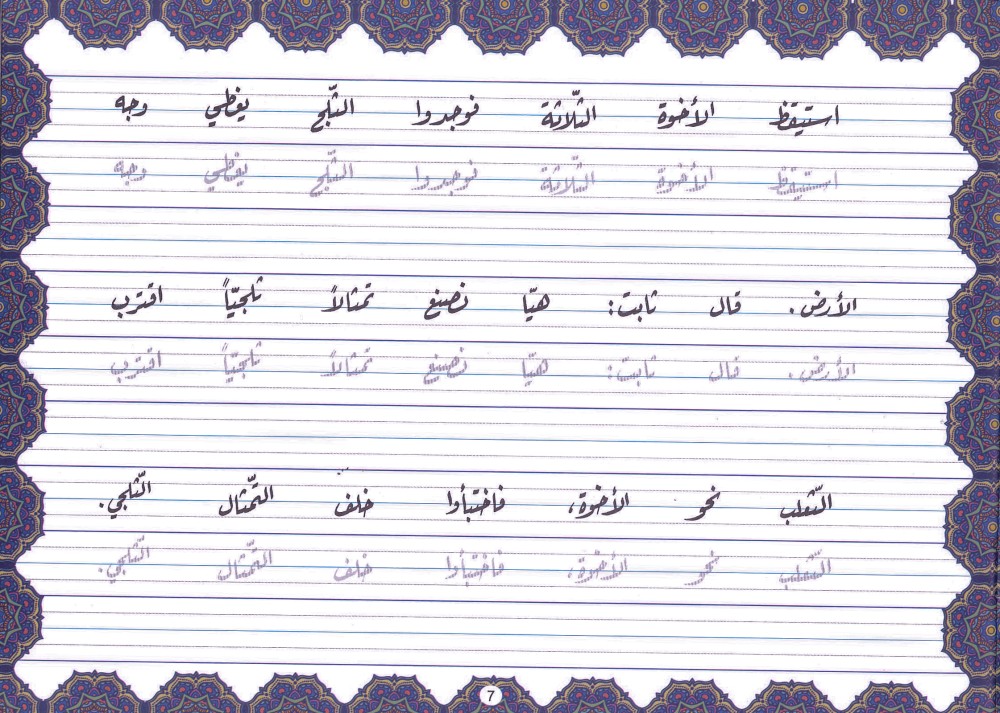 استيقظ الأخوة الثّلاثة فوجدوا الثّلج يغطي وجه
استيقظ الأخوة الثّلاثة فوجدوا الثّلج يغطي وجه
الأرض. قال ثابت: هيّا نصنع تمثالاً ثلجيّاً اقترب
الأرض. قال ثابت: هيّا نصنع تمثالاً ثلجيّاً اقترب
الثّعلب نحو الأخوة، فاختبأوا خلف التّمثال الثّلجي.
الثّعلب نحو الأخوة، فاختبأوا خلف التّمثال الثّلجي.
7